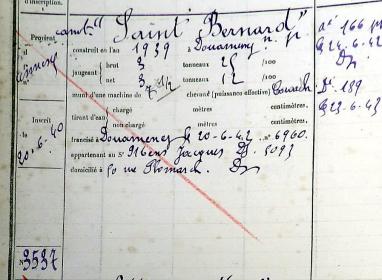 d'inscription.
canot "Saint Bernard" n. p.
construit en l'an 1939 à Douarnenez
jaugeant brut 3 tonneaux 25 /100
net 3 tonneaux 12 /100
muni d'une machine de 7-1/2 chevaux (puissance effective)
tirant d'eau chargé mètres centimètres.
non chargé mètres centimètres.
francisé à Douarnenez le 20-6-42 n° 6960.
appartenant au Sr Jacques
domicilié à 50 rue Plomarch.
Inscrit
le
20-6-40
N° 3537
n° 166
24-6-42
189
23-6-43